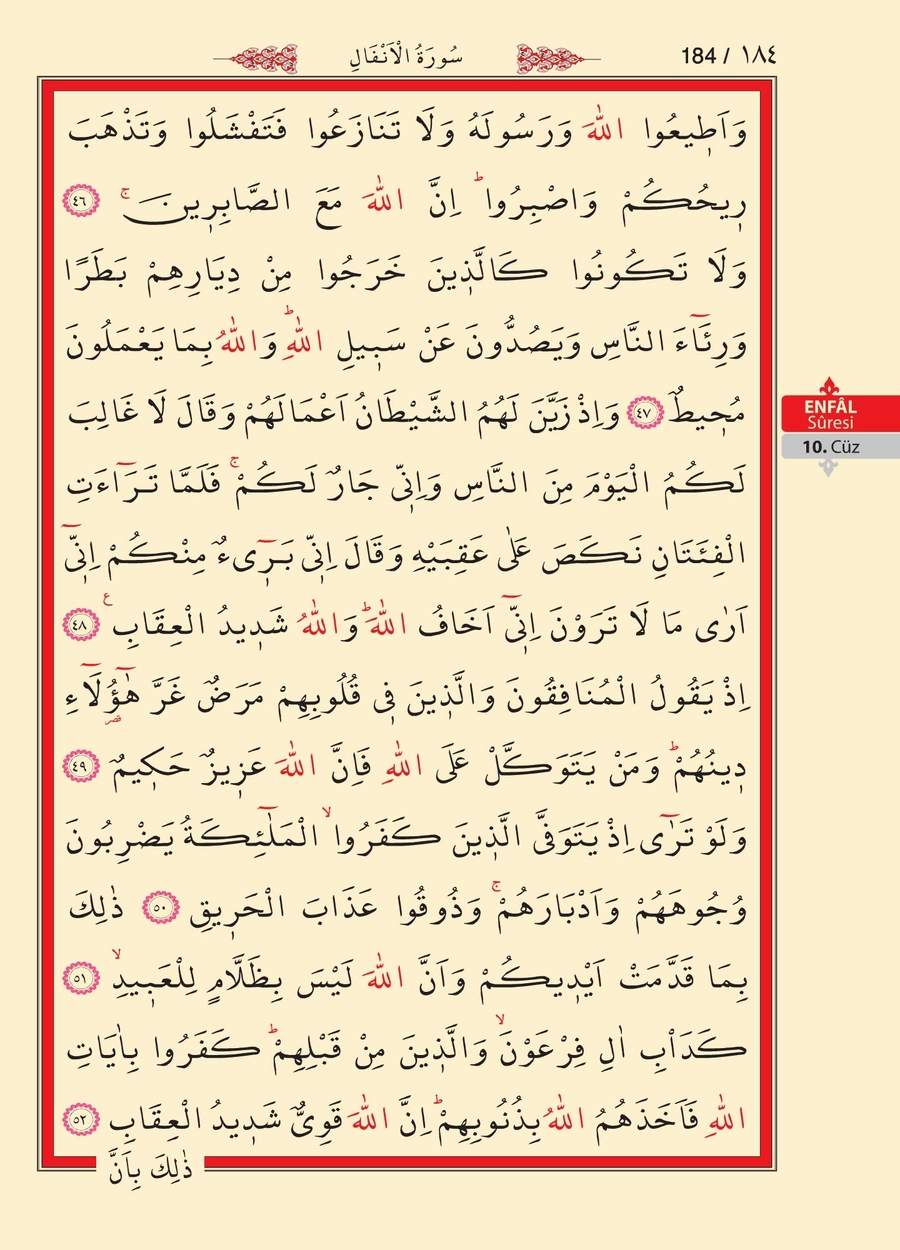 سُورَةُ الْاَنْفَالِ
184 / ١٨٤
وَاَطٖيعُوا اللّٰهَ وَرَسُولَهُ وَلَا تَنَازَعُوا فَتَفْشَلُوا وَتَذْهَبَ
رٖيحُكُمْ وَاصْبِرُواؕ اِنَّ اللّٰهَ مَعَ الصَّابِرٖينَۚ ٤٦
وَلَا تَكُونُوا كَالَّذٖينَ خَرَجُوا مِنْ دِيَارِهِمْ بَطَرًا
وَرِئَٓاءَ النَّاسِ وَيَصُدُّونَ عَنْ سَبٖيلِ اللّٰهِؕ وَاللّٰهُ بِمَا يَعْمَلُونَ
مُحٖيطٌ ٤٧ وَاِذْ زَيَّنَ لَهُمُ الشَّيْطَانُ اَعْمَالَهُمْ وَقَالَ لَا غَالِبَ
لَكُمُ الْيَوْمَ مِنَ النَّاسِ وَاِنّٖى جَارٌ لَكُمْۚ فَلَمَّا تَرَٓاءَتِ
الْفِئَتَانِ نَكَصَ عَلٰى عَقِبَيْهِ وَقَالَ اِنّٖى بَرٖٓىءٌ مِنْكُمْ اِنّٖٓى
اَرٰى مَا لَا تَرَوْنَ اِنّٖٓى اَخَافُ اللّٰهَؕ وَاللّٰهُ شَدٖيدُ الْعِقَابِ ع ٤٨
اِذْ يَقُولُ الْمُنَافِقُونَ وَالَّذٖينَ فٖى قُلُوبِهِمْ مَرَضٌ غَرَّ هٰٓؤُ۬لَٓاءِ
دٖينُهُمْؕ وَمَنْ يَتَوَكَّلْ عَلَى اللّٰهِ فَاِنَّ اللّٰهَ عَزٖيزٌ حَكٖيمٌ ٤٩
وَلَوْ تَرٰٓى اِذْ يَتَوَفَّى الَّذٖينَ كَفَرُواۙ الْمَلٰٓئِكَةُ يَضْرِبُونَ
وُجُوهَهُمْ وَاَدْبَارَهُمْۚ وَذُوقُوا عَذَابَ الْحَرٖيقِ ٥٠ ذٰلِكَ
بِمَا قَدَّمَتْ اَيْدٖيكُمْ وَاَنَّ اللّٰهَ لَيْسَ بِظَلَّامٍ لِلْعَبٖيدِۙ ٥١
كَدَاْبِ اٰلِ فِرْعَوْنَۙ وَالَّذٖينَ مِنْ قَبْلِهِمْؕ كَفَرُوا بِاٰيَاتِ
اللّٰهِ فَاَخَذَهُمُ اللّٰهُ بِذُنُوبِهِمْؕ اِنَّ اللّٰهَ قَوِىٌّ شَدٖيدُ الْعِقَابِ ٥٢
ذٰلِكَ بِاَنَّ
ENFÂL
Sûresi
10. Cüz